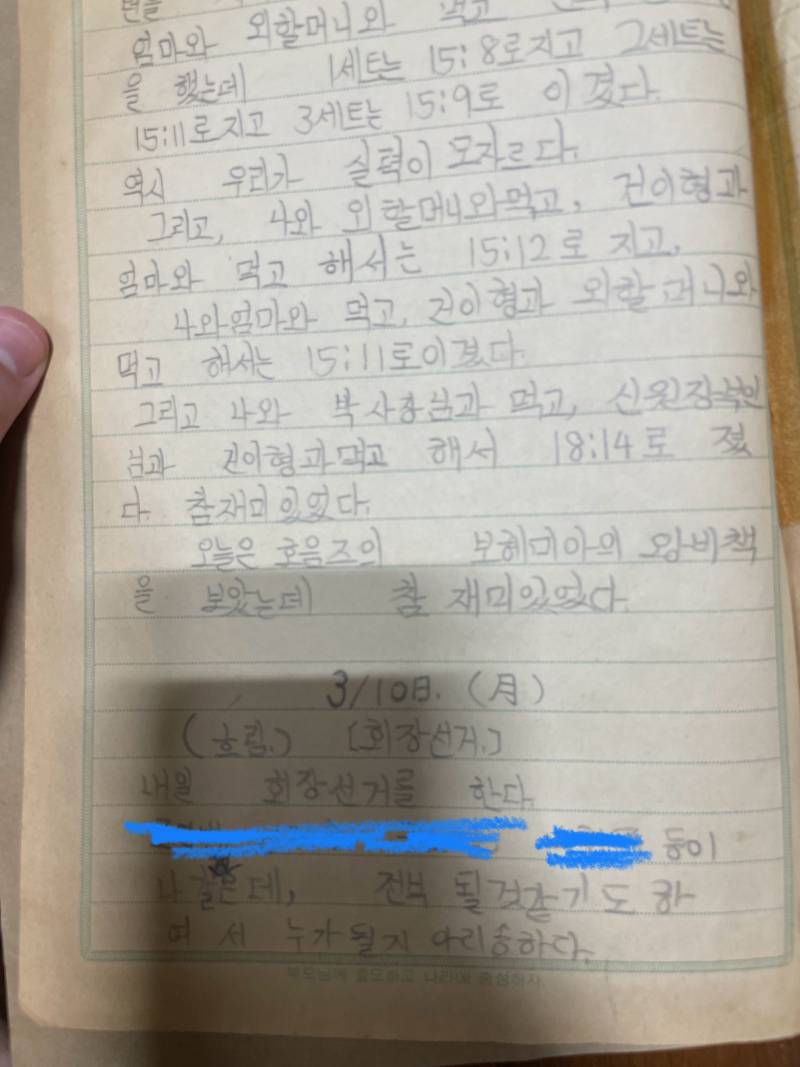 엄마와 외할머니와 먹고
을 했는데 1세트는 15:8로지고 2세트는
15:11로지고 3세트는 15:9로 이겼다.
역시 우리가 실력이 모자르다.
그리고, 나와 외할머니와먹고, 건이형과
엄마와 먹고 해서는 15:12로 지고,
나와엄마와 먹고, 건이형과 외할머니와
먹고 해서는 15:11로이겼다.
그리고 나와 박사장님과 먹고, 신원장
님과 건이형과먹고 해서 18:14로 졌
다. 참재미있었다.
오늘은 호음즈의 보헤미아의 왕비책
을 보았는데 참 재미있었다.
3/10日. (月)
(흐림.) [회장선거.]
내일 회장선거를 한다.
등이
나 데, 전부 될것같기도 하
여서 누가될지 아리송하다.
부모님께 효도하고 나라에 충성하자.